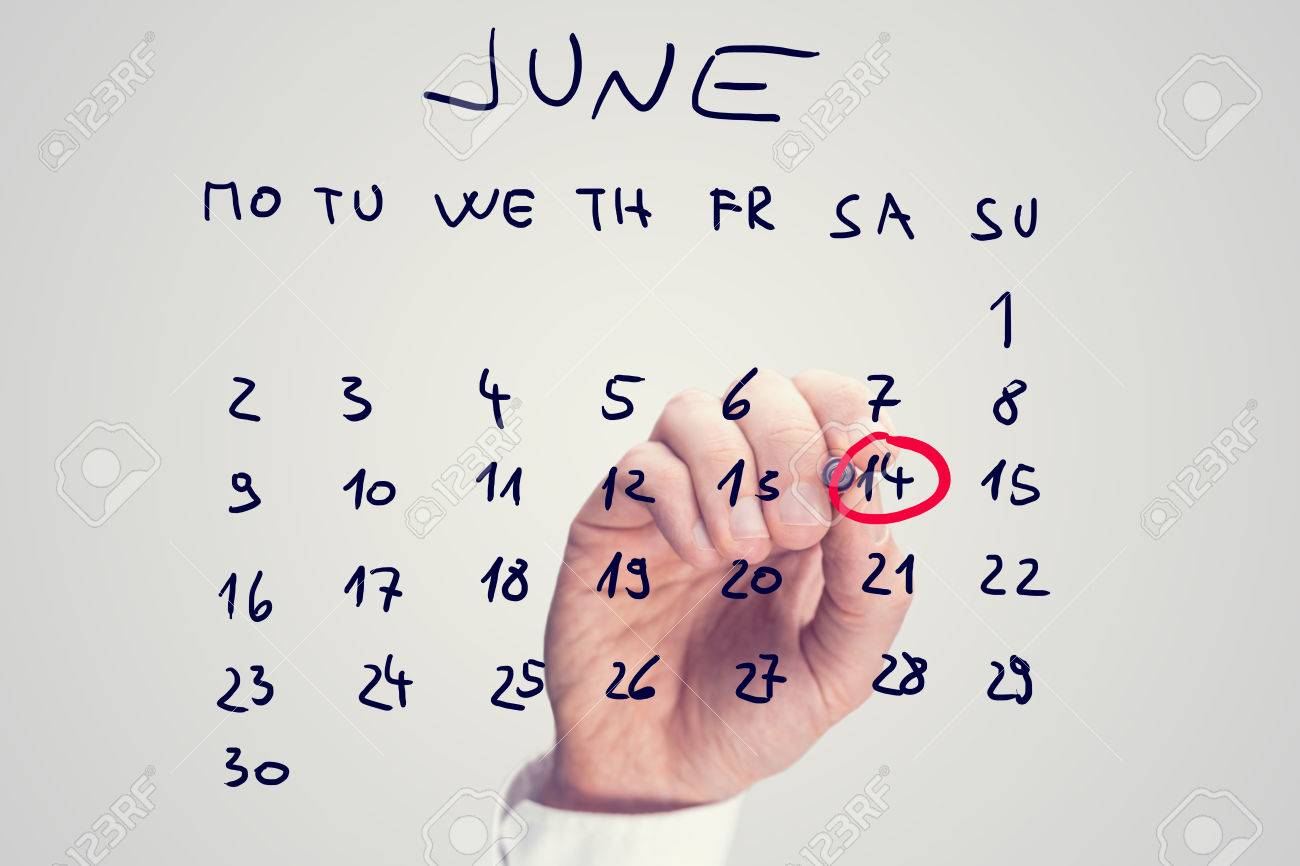 JUNE
MO TU WE TH FR SA SU
1
2 3 4 5 6 7 8
9 10 11 12 13 14 15
16 17 18 19 20 21 22
23 24 25 26 27 28 29
30
123RF
123RF
123RF
123RF
123RF
123RF
123RF
123RF